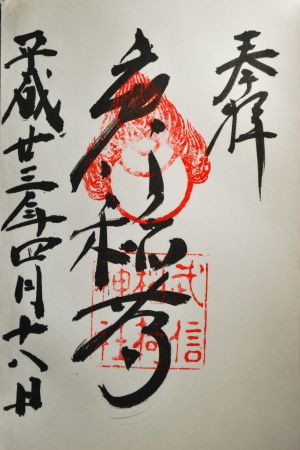 奉拝
稲荷
武信
稲荷
神社
平成廿三年四月十八日